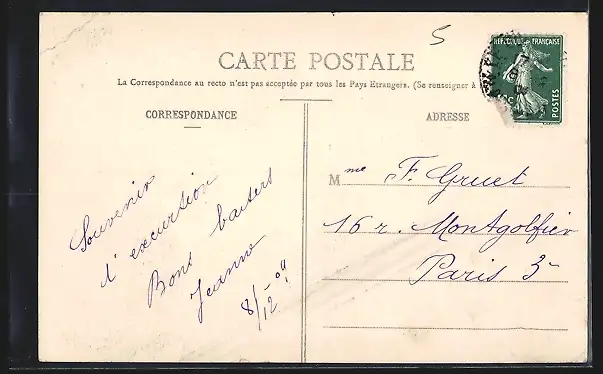 5
CARTE POSTALE
La Correspondance au recto n'est pas acceptée par tous les Pays Etrangers. (Se renseigner à
REPUBLIQUE FRANÇAISE
POSTES
CORRESPONDANCE
ADRESSE
Souvenir
d'excursion
Bons baisers
Jeanne
8/12 09
Mme F. Gruet
16 r. Montgolfier
Paris 3e